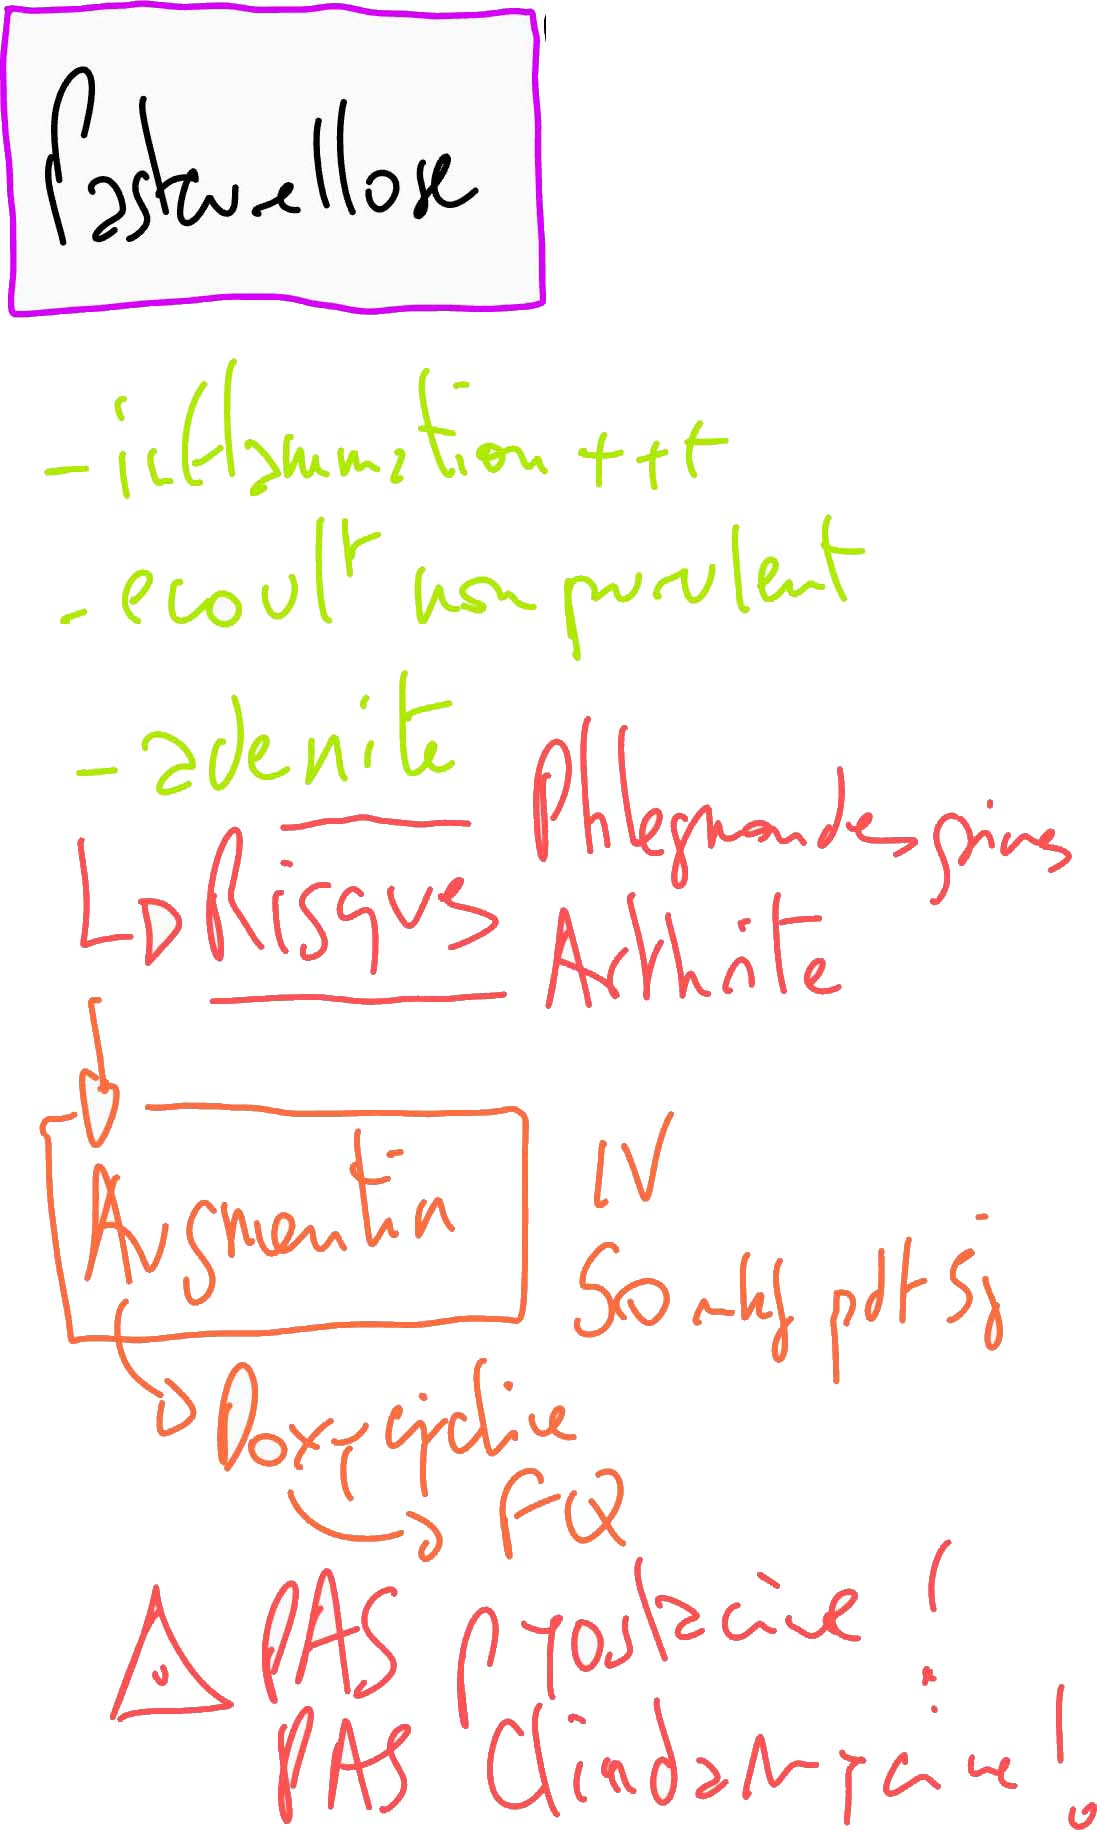 Pasteurellose
- inflammation +++
- ecoult non purulent
- adenite
Risques
Phlegmon des gaines
Arthrite
Augmentin
IV
50 mg/kg pdt 5j
Doxycycline
FQ
PAS Pyostacine !
PAS Clindamycine !